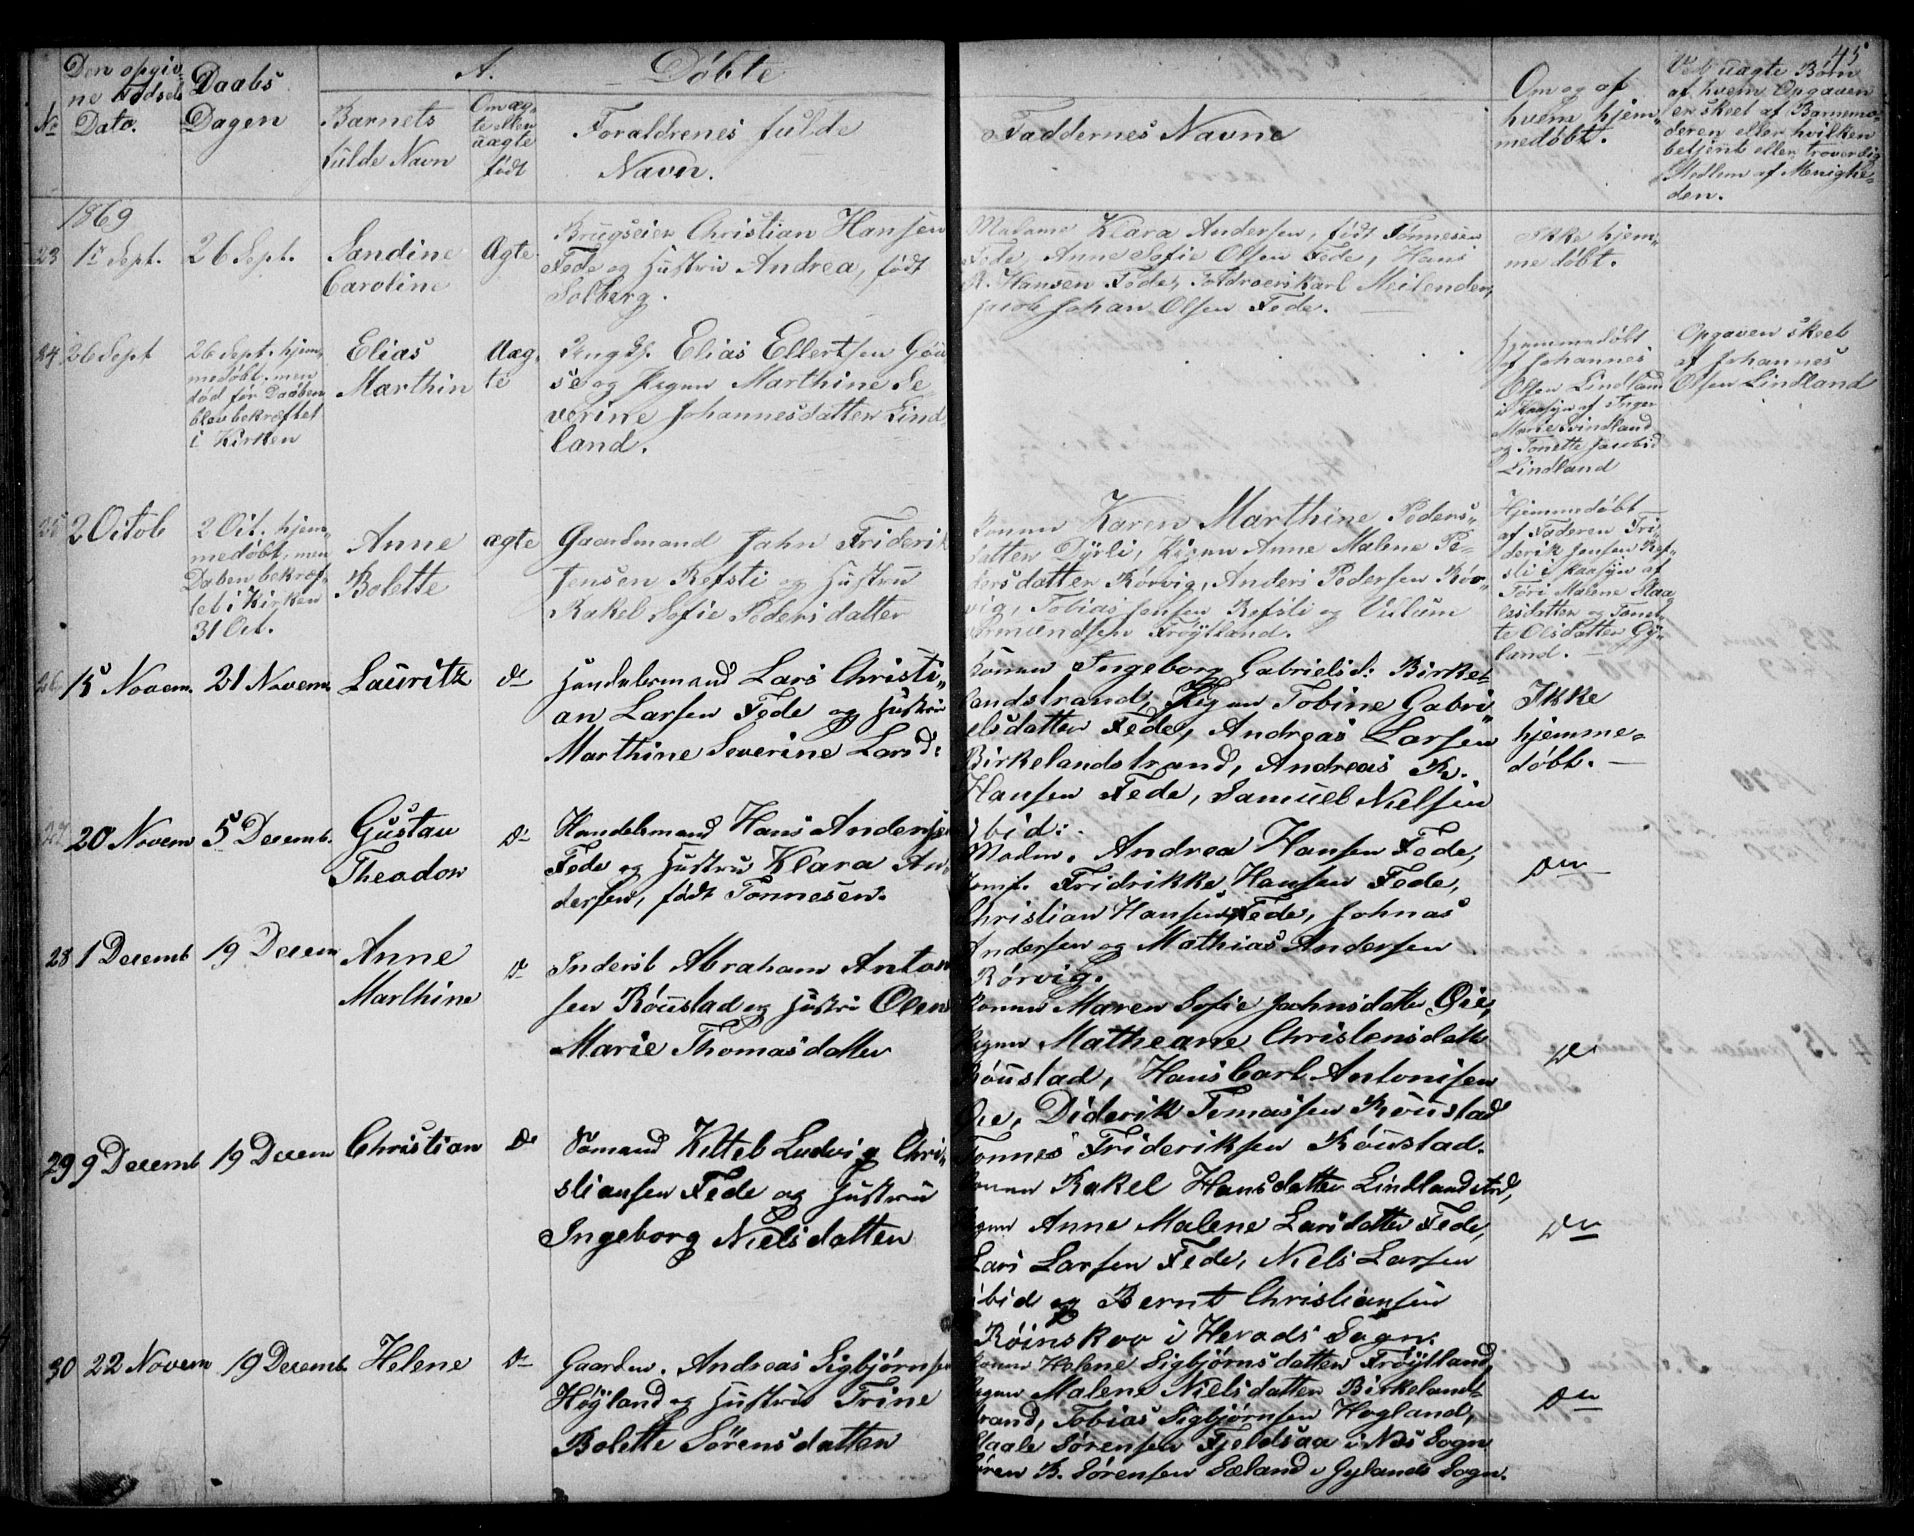 45
A. Døbte
No
Den opgiv-
ne Fødsels
Dato.
Daabs
Dagen
Barnets
fulde Navn
Om æg-
te eller
uægte
født
Forældrenes fulde
Navn.
Faddernes Navne
Om og af
hvem hjem-
medøbt.
Ved uægte Børn
af hvem Opgaven
er skeet af Barnemo-
deren eller hvilken
betjent eller troverdig
Medlem af Menighe-
den.
1869
23
1ste Sept.
26 Sept.
Sandine
Caroline
Ægte
Brugseier Christian Hansen
Fede og Hustru Andrea, født
Solberg.
Madame Klara Andersen, født Tønnesen
Fede, Anne Sofie Olsen Fede, Hans
R. Hansen Fede, Karl Meilender,
Jacob Johan Olsen Fede.
Ikke hjem-
medøbt.
24
26 Sept
26 Sept. hjem-
medøbt, men
død før Daaben
blev bekræftet
i Kirken
Elias
Marthin
Uæg-
te
Ungk. Elias Ellertsen Göu
se og Pigen Marthine Se
verine Johannesdatter Lind-
land.
Hjemmedøbt
af Johannes
Olsen Lindland
i Paasyn af Inger
Marie Svindland
og Tonette Jacobsd
Lindland
Opgaven skeet
af Johannes
Olsen Lindland
25
2 Octob
2 Oct. hjem-
medøbt, men
Daben bekræf-
tet i Kirken
31 Oct.
Anne
Bolette
ægte
Gaardmand John Friderik
Jensen Refsti og Hustru
Rakel Sofie Pedersdatter
Konen Karen Marthine Peders-
datter Dyrli, Pigen Anne Malene Pe-
dersdatter Rørvig, Anders Pedersen Rør-
vig, Tobias Jensen Refsti og Vilum
Ommundsen Frøytland.
Hjemmedøbt
af Faderen Fri-
derik Jensen Ref-
sti i paasyn af
Tori Malene Aaa
lesdatter og Tonet-
te Olsdatter Gy-
land.
26
15 Novem.
21 Novem.
Lauritz
do
Handelsmand Lars Christi-
an Larsen Fede og Hustru
Marthine Severine Larsd:
Konen Ingeborg Gabrielsd: Birke-
landstrand, Pigen Tobine Gabri-
elsdatter Fede, Andreas Larsen
Birkelandstrand, Andreas R.
Hansen Fede, Samuel Nielsen
ibid:
Ikke
hjemme-
døbt.
27
20 Novem
5 Decemb.
Gustav
Theodor
do
Handelsmand Hans Andersen
Fede og Hustru Klara An-
dersen, født Tønnesen.
Madm. Andrea Hansen Fede,
Jomf. Fridrikke Hansen Fede,
Christian Hansen Fede, Johnas
Andersen og Mathias Andersen
Rørvig.
do
28
1 Decemb
19 Decem
Anne
Marthine
do
Inderst Abraham Anton
sen Röustad og Hustru Olene
Marie Thomasdatter
Konen Maren Sofie Jachnsdatter Øie,
Pigen Matheane Christensdatter
Röustad, Hans Carl Antonisen
Øie, Diderik Tomassen Röustad
Tønnes Frideriksen Röustad.
do
29
9 Decemb
19 Decem
Christian
do
Sømand Kittel Ludvig Chri-
stiansen Fede og Hustru
Ingeborg Nielsdatter
Konen Rakel Hansdatter Lindlandstrd,
Pigen Anne Malene Larsdatter Fede,
Lars Larsen Fede, Niels Larsen
ibid og Bernt Christiansen
Röinskov i Herads Sogn.
do
30
22 Novem
19 Decemb.
Helene
do
Gaardm. Andreas Sigbjørnsen
Høyland og Hustru Trine
Bolette Sörensdatter
Konen Helene Sigbjørnsdatter Frøytland,
Pigen Malene Nielsdatter Birkeland-
strand, Tobias Sigbjørnsen Høgland,
Staale Sørensen Fjeldsaa i Næs Sogn
Søren B. Sørensen Sæland i Gylands Sogn.
do